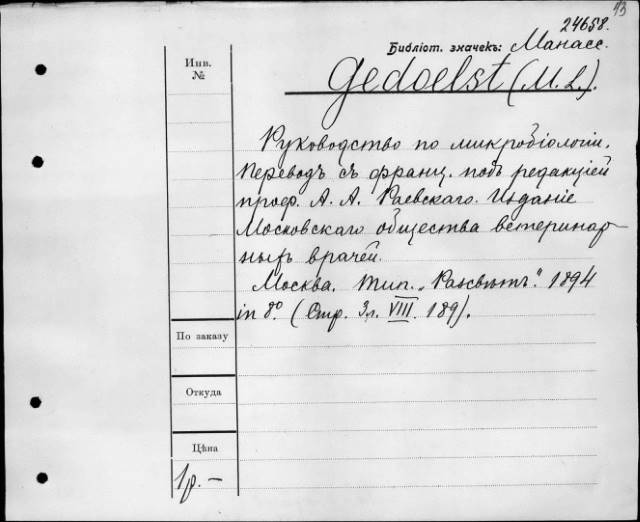 13
24658.
Библіот. значекъ: Манасс.
Инв.
№
Gedoelst (M. L.).
Руководство по микробіологіи.
Переводъ съ франц. подъ редакціей
проф. А. А. Раевскаго. Изданіе
Московскаго общества ветеринар-
ныхъ врачей.
Москва. Тип. „Разсвѣтъ". 1894
in 8º. (Стр. 3л. VIII. 189).
По заказу
Откуда
Цѣна
1 р. —